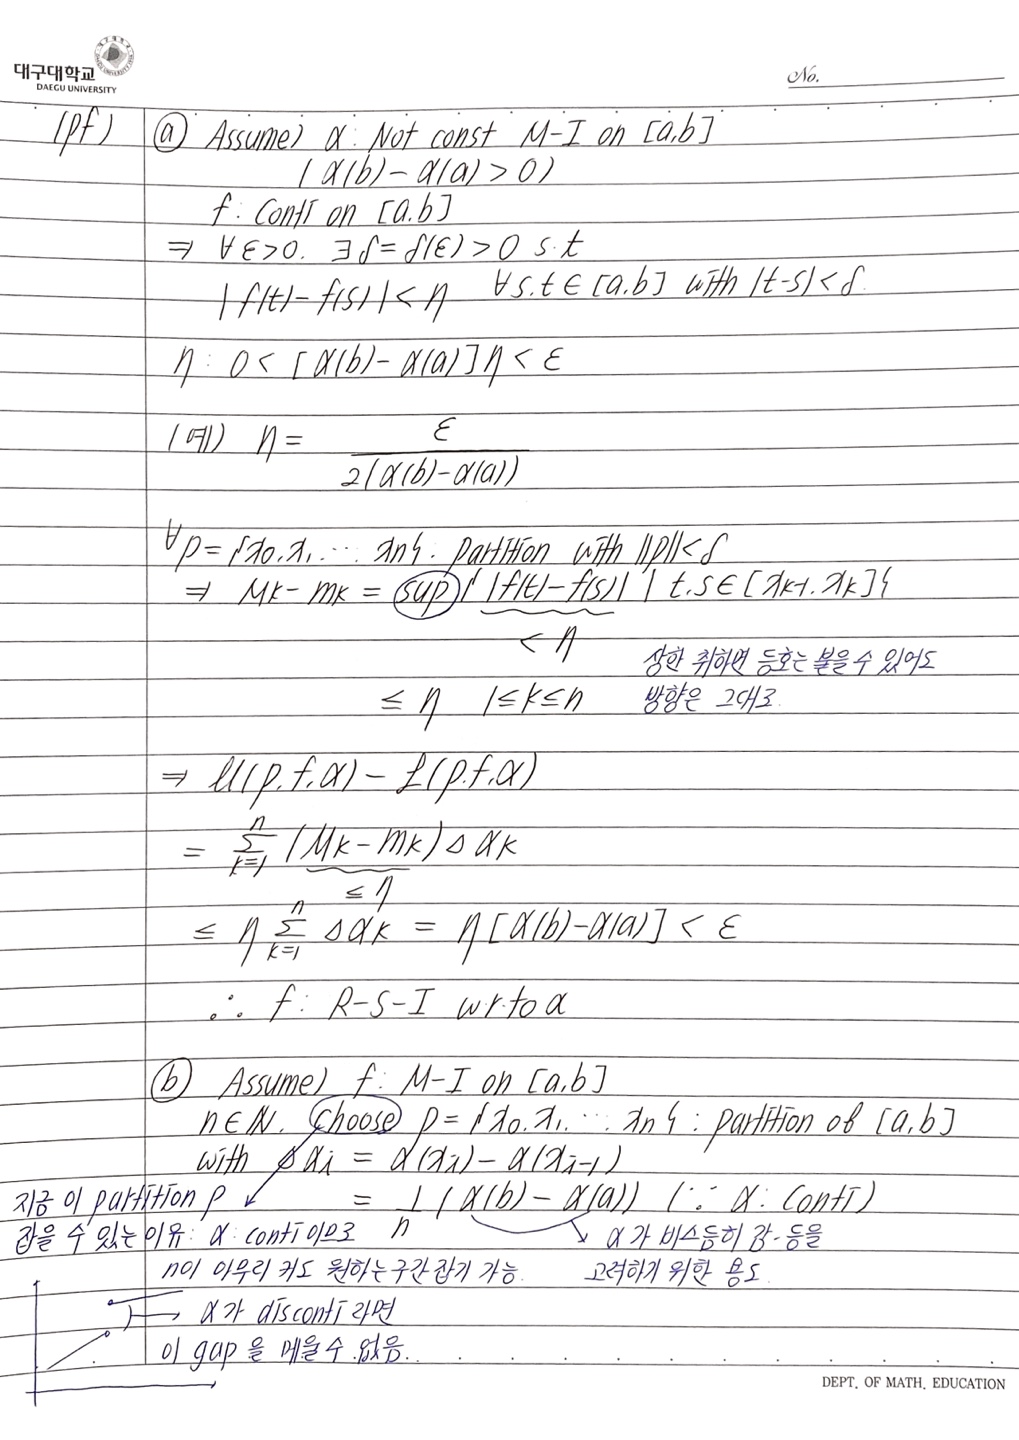 대구대학교
DAEGU UNIVERSITY
No.
(pf) ⓐ Assume) α: Not const M-I on [a,b]
(α(b)-α(a)>0)
f: Conti on [a.b]
⇒ ∀ε>0. ∃δ=δ(ε)>0 s.t
|f(t)-f(s)|<η ∀s.t∈[a.b] with |t-s|<δ.
η: 0<[α(b)-α(a)]η<ε
(예) η = ε / 2(α(b)-α(a))
∀p={x0.x1.…xn}. partition with ||p||<δ
⇒ Mk-mk = sup{|f(t)-f(s)| | t.s∈[xk-1.xk]}
<η
상한 취하면 등호는 붙을 수 있어도
≤ η 1≤k≤n 방향은 그대로.
⇒ U(p.f.α) - L(p.f.α)
= Σ_{k=1}^{n} (Mk-mk)Δαk
≤η
≤ η Σ_{k=1}^{n} Δαk = η[α(b)-α(a)] < ε
∴ f: R-S-I w.r.to α
ⓑ Assume) f: M-I on [a,b]
n∈N. Choose p={x0.x1.…xn}: partition of [a,b]
with Δαi = α(xi)-α(xi-1)
= 1/n (α(b)-α(a)) (∵ α: Conti)
지금 이 partition p
잡을 수 있는 이유: α: conti이므로
n이 아무리 커도 원하는 구간 잡기 가능.
α가 비스듬히 감-등을
고려하기 위한 용도.
α가 disconti라면
이 gap을 메울 수 없음.
DEPT. OF MATH. EDUCATION